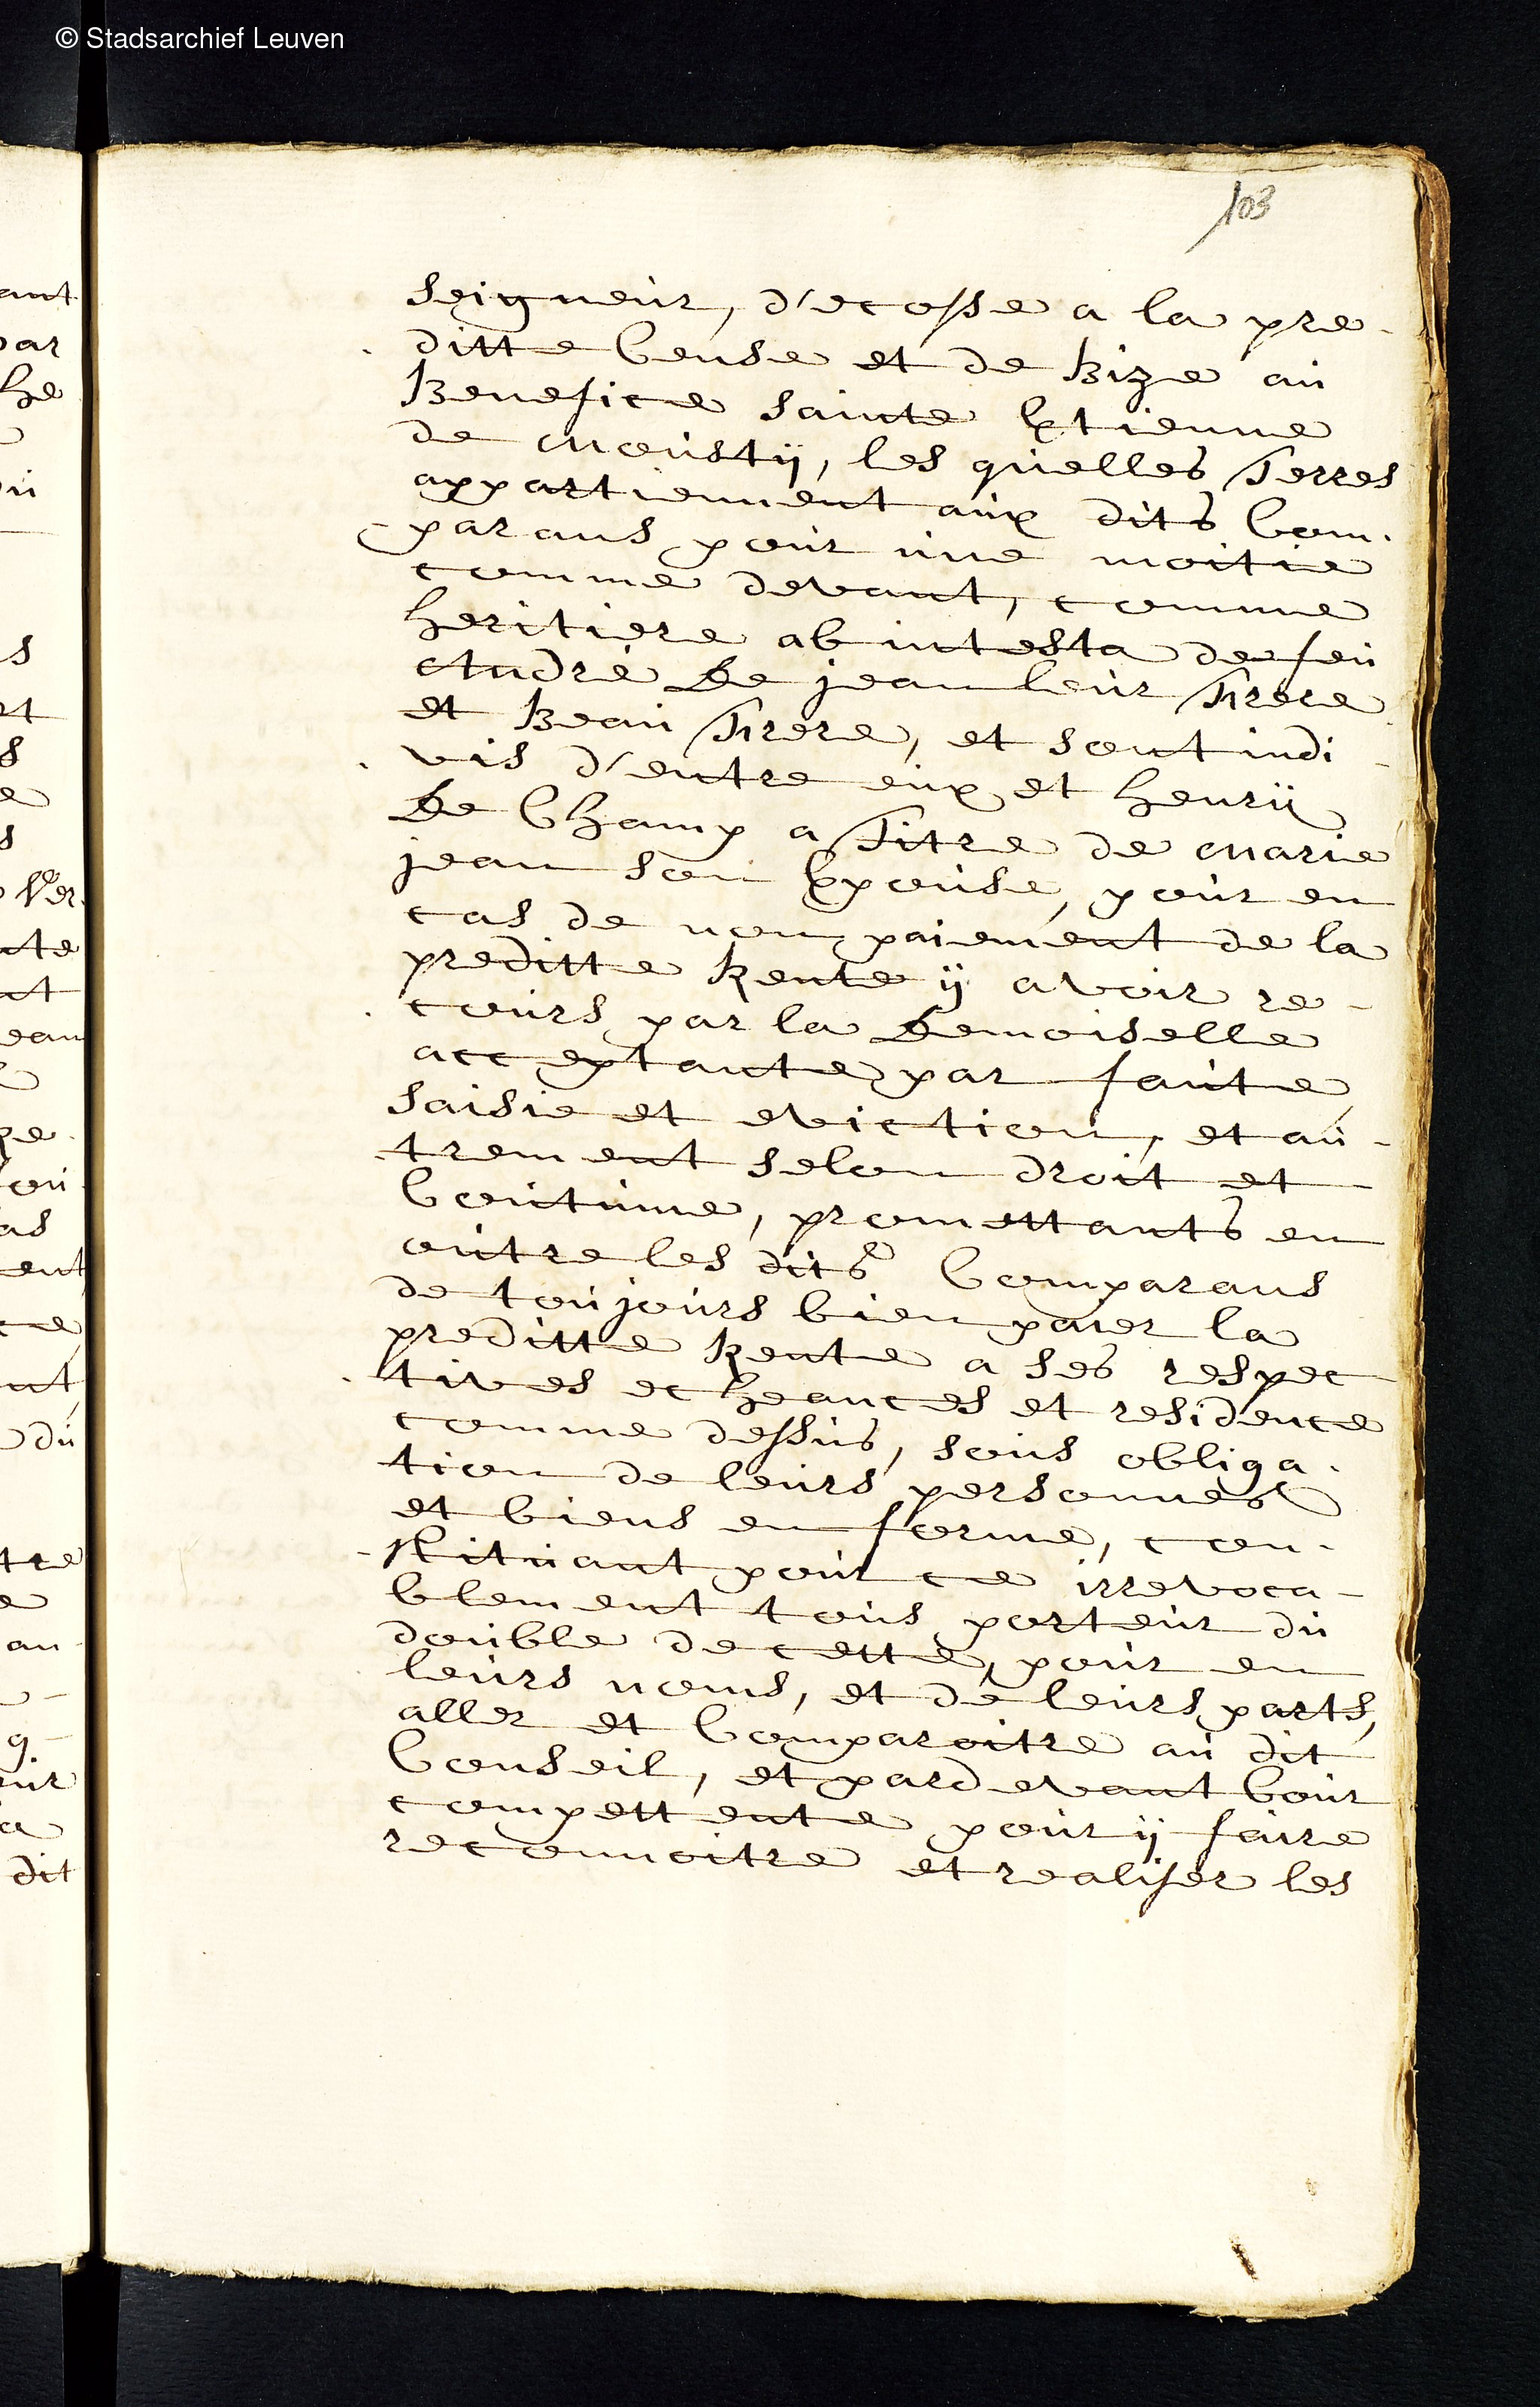 © Stadsarchief Leuven
103
seigneur, d'ecosse a la pre-
ditte Cense et de Bize au
Benefice sainte Etienne
de Moustÿ, les quelles Terres
appartiennent aux dits Com-
parans pour une moitie
comme devant, comme
heritiere ab intesta de feu
André De jean leur Frere
et Beau Frere, et sont indi-
vis d'entre eux et henrÿ
De Champ a Titre de Marie
jean son Epouse, pour en
cas de non paiement de la
preditte Rente ÿ avoir re-
cours par la Demoiselle
acceptante par faute,
saisie et eviction, et au-
trement selon droit et
Coutume, promettants en
outre les dits Comparans
de toujours bien paier la
preditte Rente a ses respec
tives echeances et residence
comme dessus, sous obliga-
tion de leurs personnes
et biens en forme, con-
stituant pour ce irrevoca-
blement tous porteur du
double de cette, pour en
leurs noms, et de leurs parts,
aller et Comparoitre au dit
Conseil, et pardevant Cour
compettente pour ÿ faire
reconnoitre et realiser les